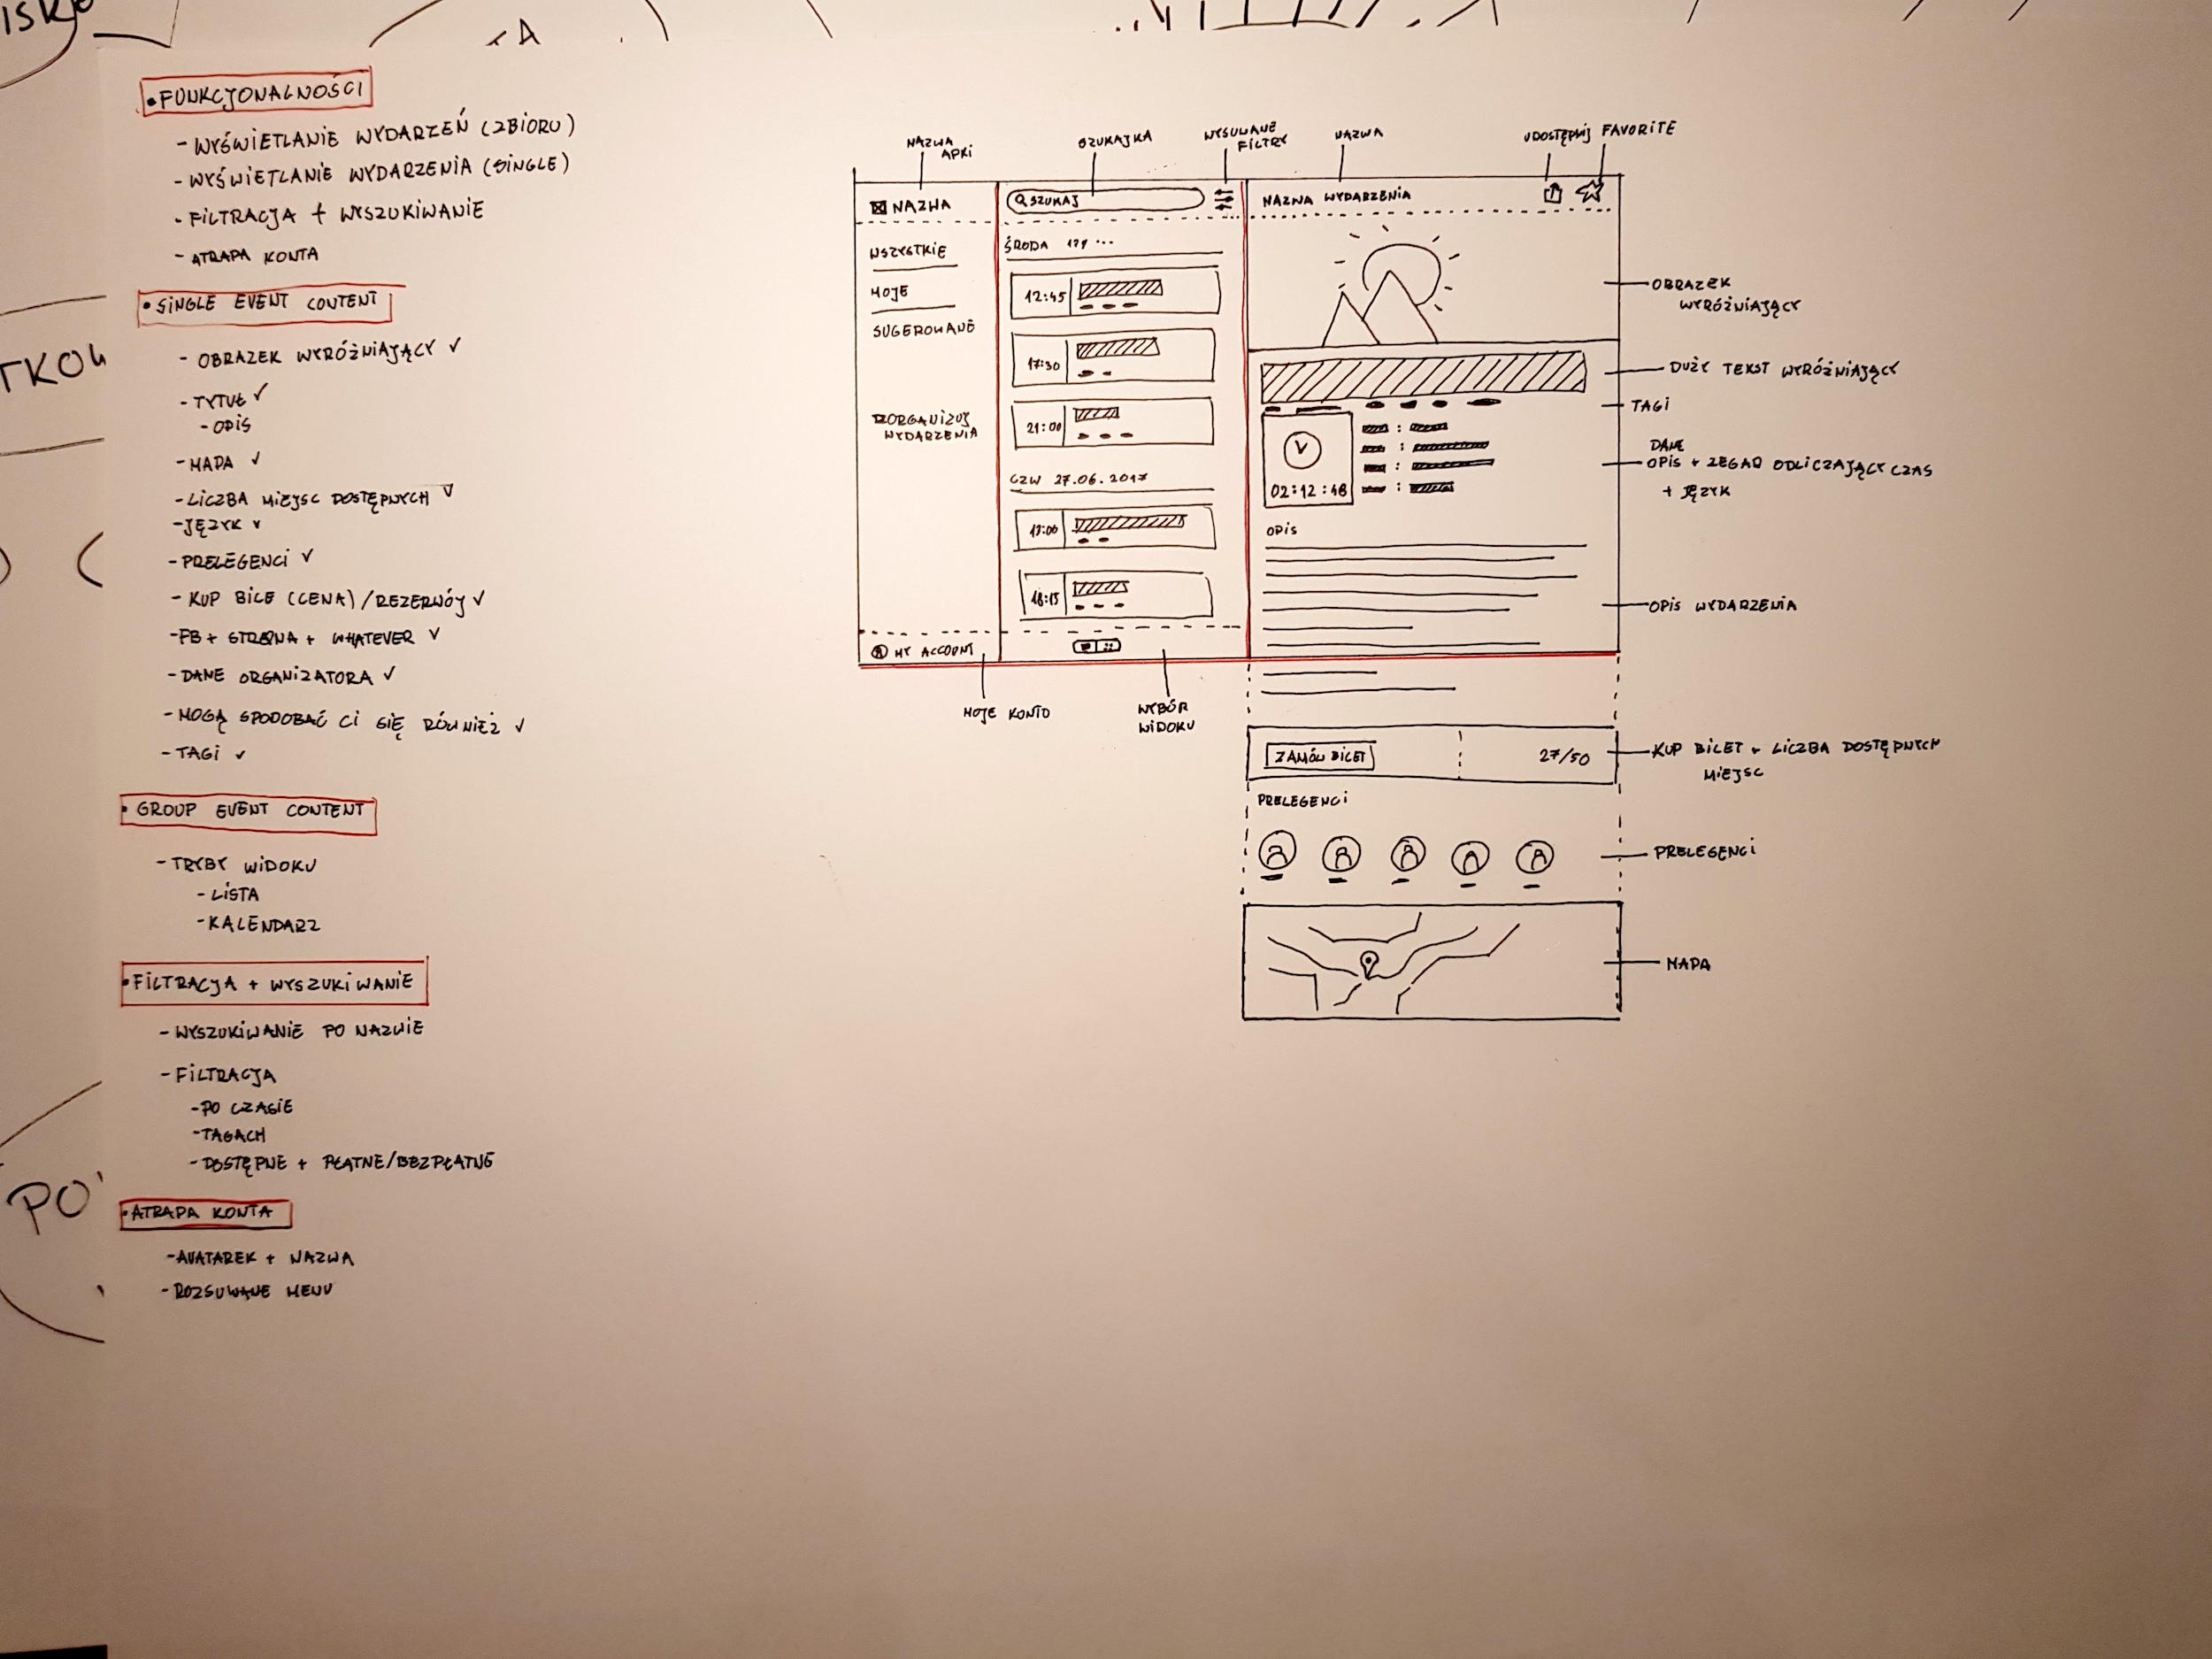 • FUNKCJONALNOŚCI
- WYŚWIETLANIE WYDARZEŃ (ZBIORU)
- WYŚWIETLANIE WYDARZENIA (SINGLE)
- FILTRACJA + WYSZUKIWANIE
- ATRAPA KONTA
• SINGLE EVENT CONTENT
- OBRAZEK WYRÓŻNIAJĄCY ✓
- TYTUŁ ✓
- OPIS
- MAPA ✓
- LICZBA MIEJSC DOSTĘPNYCH ✓
- JĘZYK ✓
- PRELEGENCI ✓
- KUP BILE (CENA) / REZERWÓJ ✓
- FB + STRONA + WHATEVER ✓
- DANE ORGANIZATORA ✓
- MOGĄ SPODOBAĆ CI SIĘ RÓWNIEŻ ✓
- TAGI ✓
• GROUP EVENT CONTENT
- TRYBY WIDOKU
- LISTA
- KALENDARZ
• FILTRACJA + WYSZUKIWANIE
- WYSZUKIWANIE PO NAZWIE
- FILTRACJA
- PO CZASIE
- TAGACH
- DOSTĘPNE + PŁATNE/BEZPŁATNE
• ATRAPA KONTA
- AVATAREK + NAZWA
- ROZSUWANE MENU
NAZWA
APKI
SZUKAJKA
WYSUWANE
FILTRY
NAZWA
UDOSTĘPNIJ
FAVORITE
NAZWA
WSZYSTKIE
MOJE
SUGEROWANE
ZORGANIZUJ
WYDARZENIA
MY ACCOUNT
SZUKAJ
ŚRODA
12:45
17:30
21:00
CZW 27.06.2017
13:00
18:15
NAZWA WYDARZENIA
02:12:48
OPIS
ZAMÓW BILET
27/50
PRELEGENCI
MOJE KONTO
WYBÓR
WIDOKU
OBRAZEK
WYRÓŻNIAJĄCY
DUŻY TEKST WYRÓŻNIAJĄCY
TAGI
DANE
OPIS + ZEGAR ODLICZAJĄCY CZAS
+ JĘZYK
OPIS WYDARZENIA
KUP BILET + LICZBA DOSTĘPNYCH
MIEJSC
PRELEGENCI
MAPA
TKOW
PO